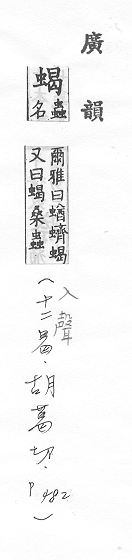 廣韻
蝎 蟲名
爾雅曰蝤蠐蝎
又曰蝎桑蟲
(入聲
十二曷.胡葛切.P482)